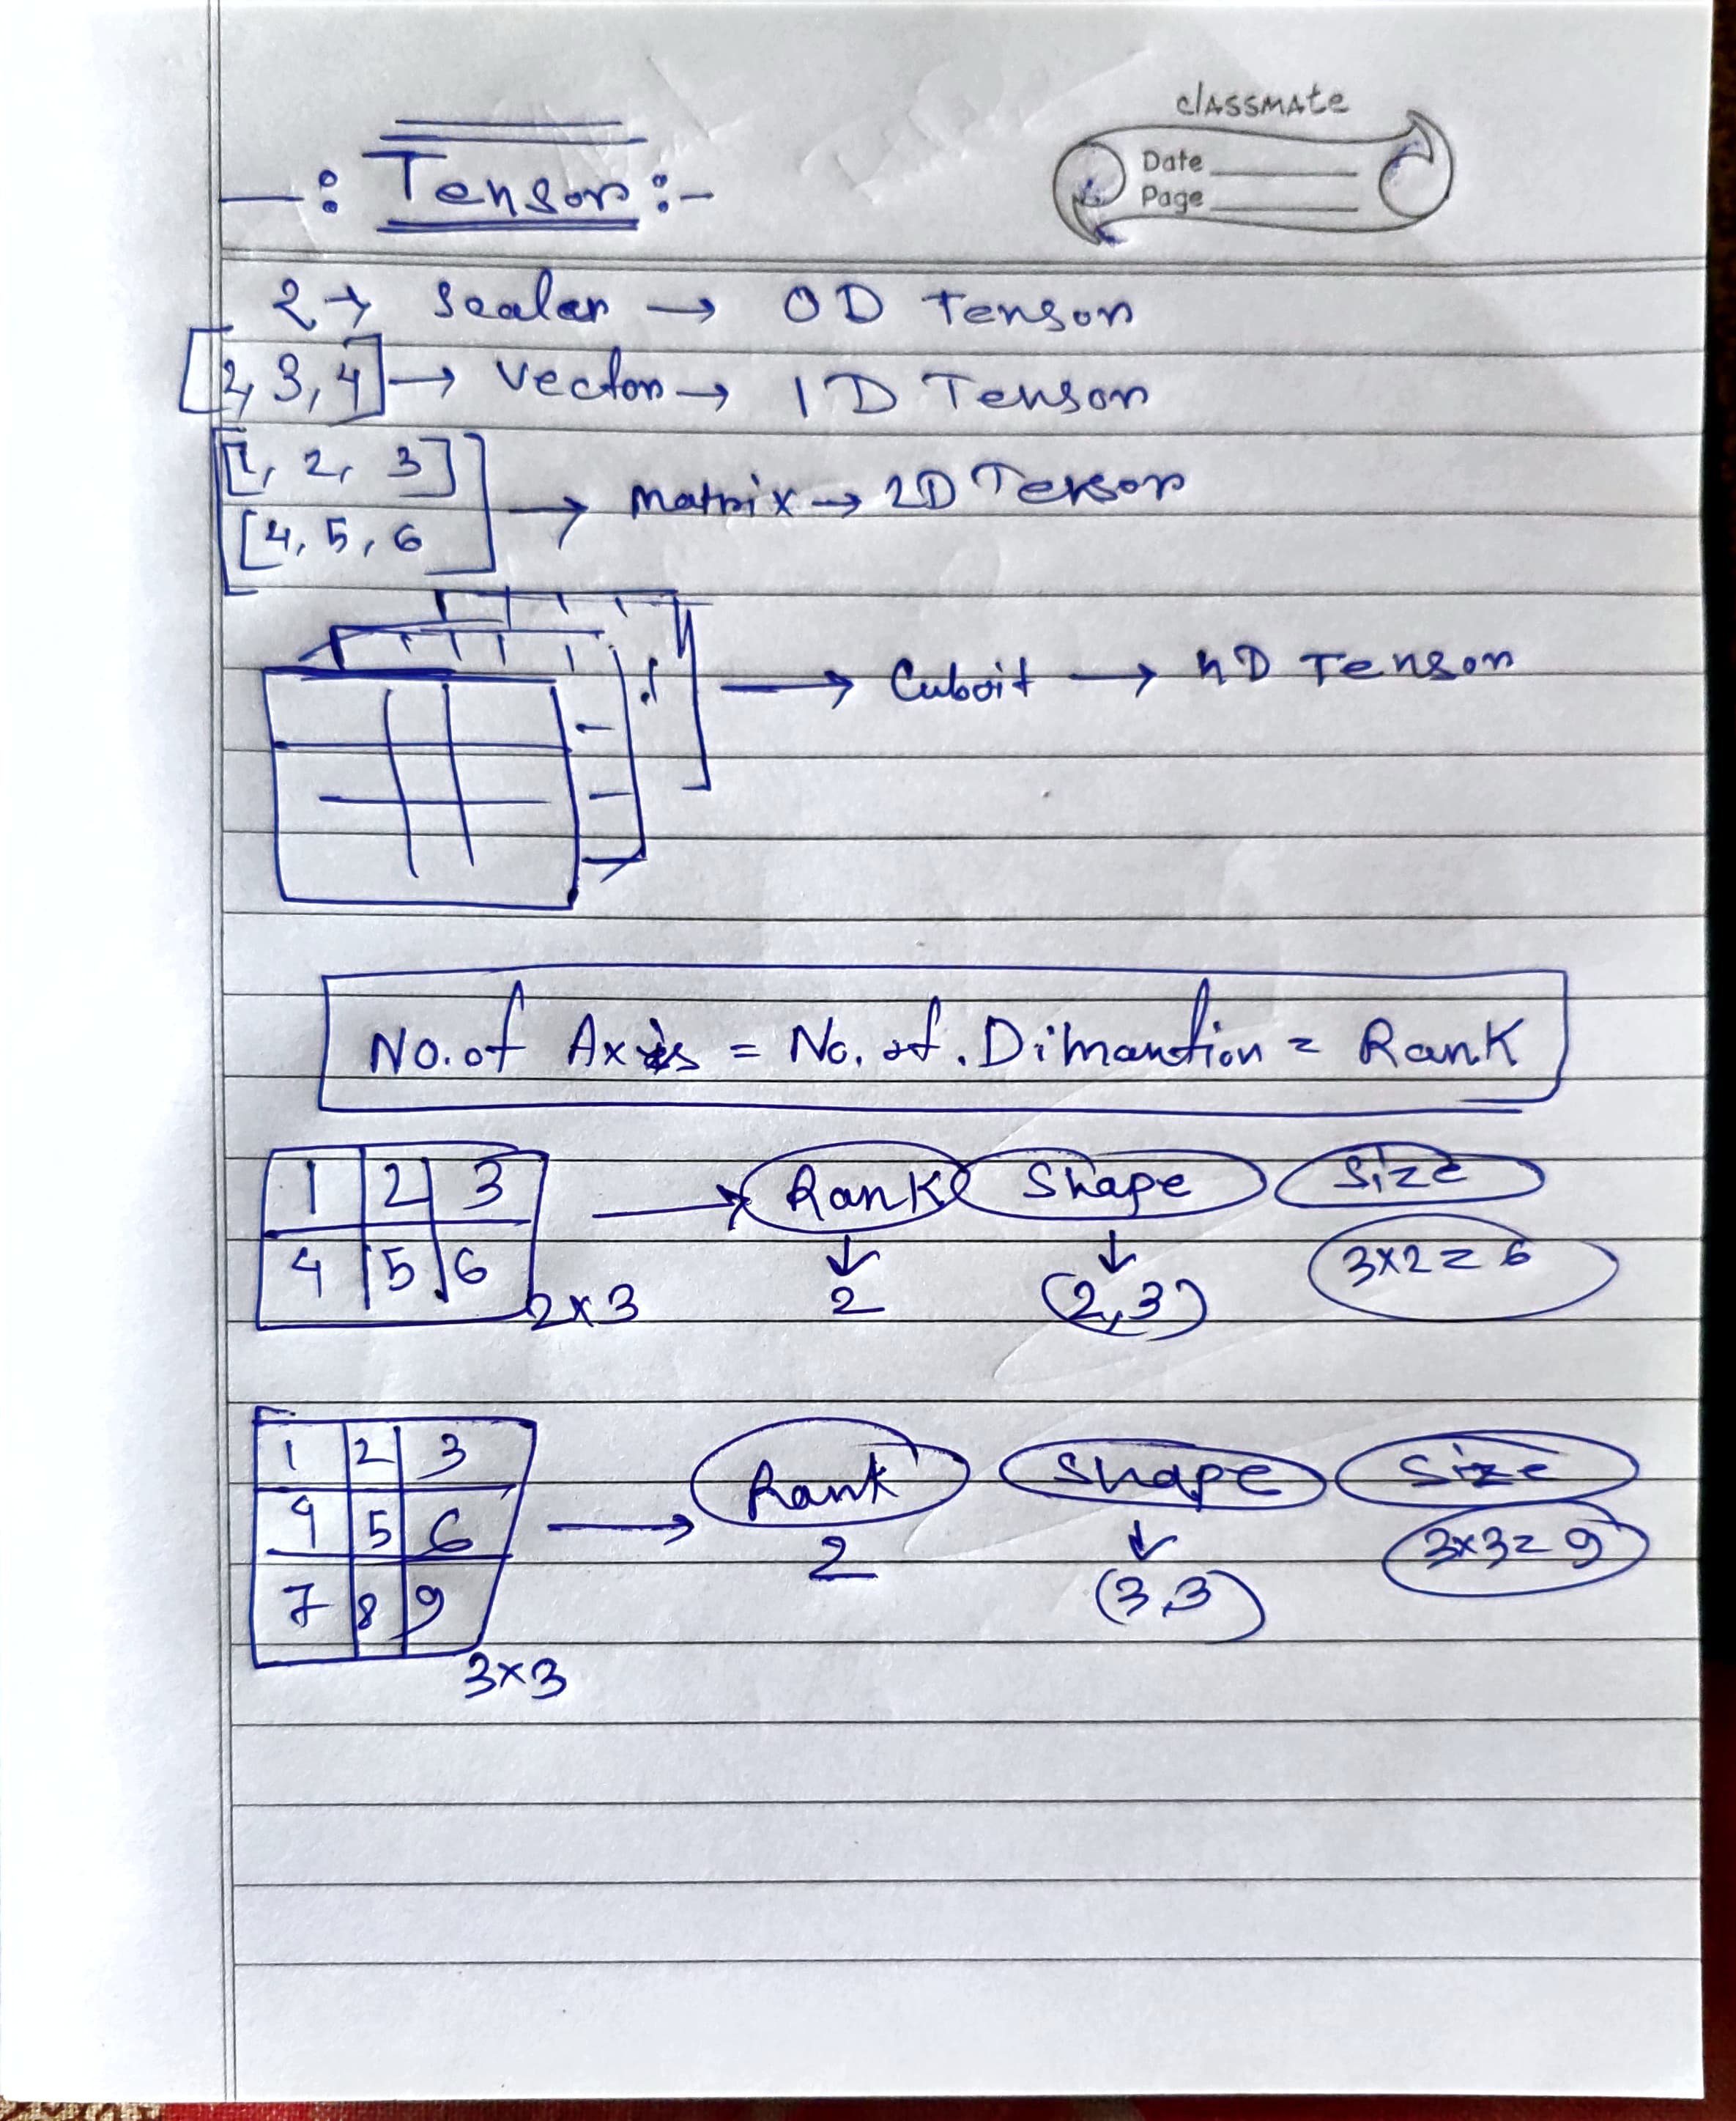 classmate
Date
Page
—: Tensor :-
2 → Scaler → 0D Tensor
[2, 3, 4] → Vector → 1D Tensor
[[1, 2, 3]
[4, 5, 6 ] → Matrix → 2D Tensor
→ Cuboit → nD Tensor
No. of Axis = No. of. Dimantion = Rank
1 2 3 → Rank Shape Size
4 5 6 2x3 ↓ 2 ↓ (2,3) 3x2 = 6
1 2 3 → Rank Shape Size
4 5 6 2 ↓ (3,3) 3x3 = 9
7 8 9
3x3